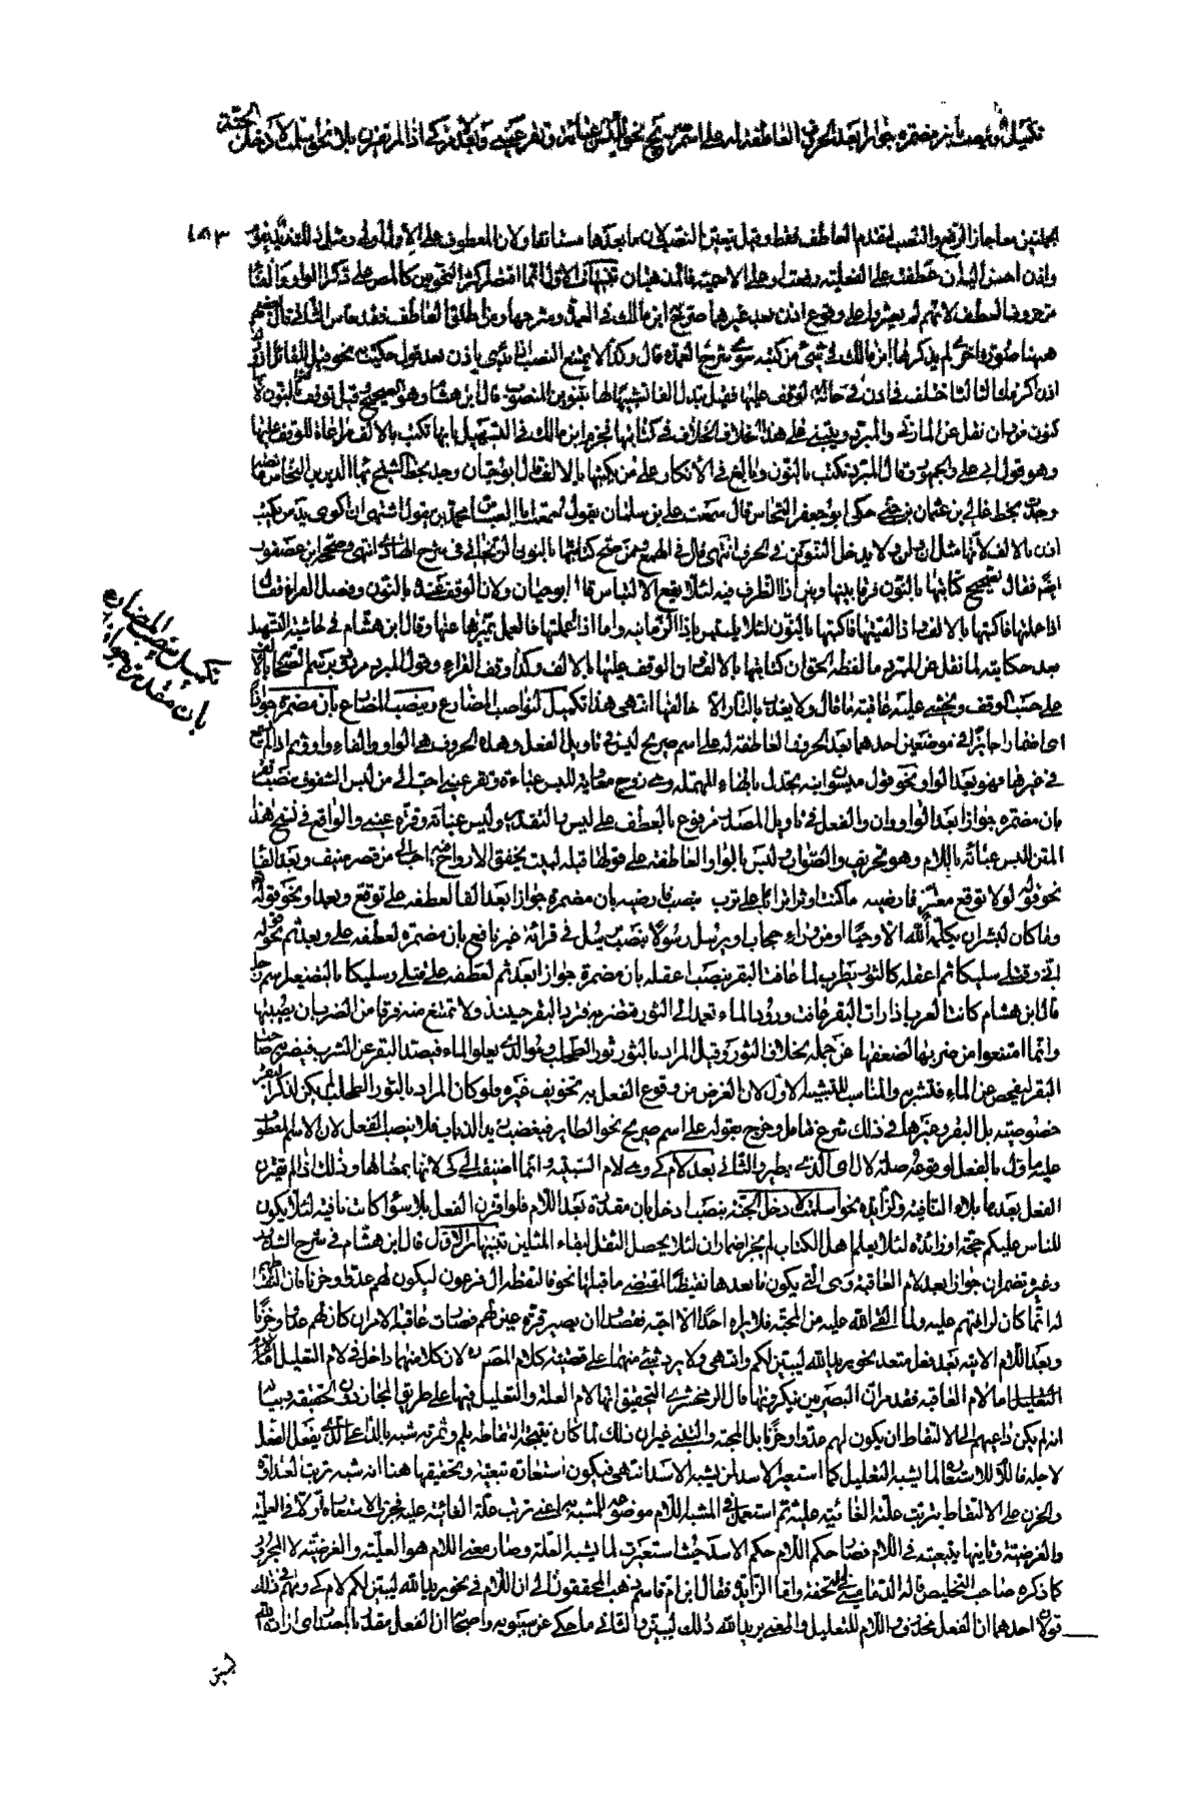 تكميل وينصب بان مضمرة جوازا بعد الحروف العاطفة له على اسم صريح نحو للبس عباءة وتقر عيني وبعد لام كي اذا لم يقترن بلا نحو اسلمت لادخل الجنة
١٨٣
جملتين معا جاز الرفع والنصب لتقدم العاطف فقط وقيل يتعين النصب لان ما بعدها مستانف ولان المعطوف على الاول اول ومثل ذلك زيد يقوم
واذن احسن اليه ان عطفت على الفعلية رفعت او على الاسمية فالمذهبان تنبيهات الاول انما اقتصر اكثر النحويين كالمص على ذكر الواو والفاء
من حروف العطف لانهم لم يعثروا على وقوع اذن بعد غيرهما صرح ابن مالك في العمدة وشرحها ومن اطلق العاطف فقد قاس الثاني قال بعضهم
ههنا صورة اخرى لم يذكرها ابن مالك في شيء من كتبه سوى شرح العمدة قال وكذا لا يمتنع النصب
اذن اكرمك الثالث اختلف في اذن في حالة الوقف عليها فقيل يبدل الفا تشبيها لها بتنوين المنصوب قال ابن هشام وهو الصحيح وقيل توقف بالنون لانها
كنون لن وان نقل عن المازني والمبرد ويبتنى على هذا الخلاف الخلاف في كتابتها فجزم ابن مالك في التسهيل بانها تكتب بالالف مراعاة للوقف عليها
وهو قول ابي علي والجمهور وقال المبرد تكتب بالنون وبالغ في الانكار على من يكتبها بالالف قال ابو حيان وجد بخط الشيخ بهاء الدين بن النحاس ما نصه
وجدت بخط عالي بن عثمان بن جني حكى ابو جعفر النحاس قال سمعت علي بن سليمان يقول سمعت ابا العباس محمد بن يزيد يقول اشتهي ان اكوي يد من يكتب
اذن بالالف لانها مثل ان ولن ولا يدخل التنوين في الحرف انتهى قال في الهمع وممن صحح كتابتها بالنون الزنجاني في شرح الهادي انتهى وصححه ابن عصفور
ايضا فقال الصحيح كتابتها بالنون فرقا بينها وبين اذا الظرفية لئلا يقع الالتباس قال ابو حيان ولان الوقف عنده بالنون وفصل الفراء فقال
اذا عملتها فاكتبها بالالف واذا الغيتها فاكتبها بالنون لئلا يلتبس باذا الزمانية واما اذا اعملتها فالعمل يميزها عنها وقال ابن هشام في حاشية التسهيل
بعد حكايته لما نقل عن المبرد ما لفظه الحق ان كتابتها بالالف ان الوقف عليها بالالف وكذا وقف القراء وقول المبرد مردود برسم الصحابة
على حسب الوقف ويخشى عليه عاقبة ما قال ولا يعذب بالنار الا خالقها انتهى هذا تكميل لنواصب المضارع وينصب المضارع بان مضمرة جوازا
اي اضمارا جائزا في موضعين احدهما بعد الحروف العاطفة له على اسم صريح ليس في تاويل الفعل وهذه الحروف هي الواو والفاء واو وثم اذ لم يسمع
في غيرها فهو بعد الواو نحو قول ميسون ابنة بحدل بالحاء المهملة وهي زوج معاوية للبس عباءة وتقر عيني احب الي من لبس الشفوف بنصب تقر
بان مضمرة جوازا بعد الواو وان والفعل في تاويل المصدر مرفوع بالعطف على لبس بالتقدير ولبس عباءة وقرة عيني والواقع في نسخ هذا
المتن للبس عباءة باللام وهو تحريف والصواب ولبس بالواو العاطفة على قولها قبله لبيت تخفق الارواح فيه احب الي من قصر منيف وبعد الفاء
نحو قوله لولا توقع معتر فارضيه ما كنت اوثر اترابا على ترب بنصب فارضيه بان مضمرة جوازا بعد الفا لعطفه على توقع وبعد او نحو قوله
وما كان لبشر ان يكلمه الله الا وحيا او من وراء حجاب او يرسل رسولا بنصب يرسل في قرائة غير نافع بان مضمرة لعطفه على وحيا وبعد ثم نحو قوله
اني وقتلي سليكا ثم اعقله كالثور يضرب لما عافت البقر بنصب اعقله بان مضمرة جوازا بعد ثم لعطفه على قتلي وسليكا بالتصغير اسم رجل
قال ابن هشام كانت العرب اذا رات البقر عافت ورود الماء تعمد الى الثور فتضربه فترد البقر حينئذ ولا تمتنع منه فرقا من الضرب ان يصيبها
وانما امتنعوا من ضربها لضعفها عن حمله بخلاف الثور وقيل المراد بالثور ثور الطحلب وهو الذي يعلو الماء فيصد البقر عن الشرب فيضربه صاحب
البقر ليفحص عن الماء فتشربه والمناسب للتشبيه الاول لان الغرض من وقوع الفعل به تخويف غيره ولو كان المراد بالثور الطحلب لم يكن لذكر البقر
خصوصية بل البقر وغيرها في ذلك شرع فتامل وخرج بقوله على اسم صريح نحو الطائر فيغضب زيد الذباب فلا ينصب الفعل لان الاسم المعطوف
عليه ماول بالفعل لوقوعه صلة لال اي الذي يطير والثاني بعد لام كي وهي لام السببية وانما اضيفت الى كي لانها بمعناها وذلك اذا لم يقترن
الفعل بعدها بلا النافية والزايدة نحو اسلمت لادخل الجنة بنصب ادخل بان مقدرة بعد اللام فلو اقترن الفعل بلا سواء كانت نافية لئلا يكون
للناس عليكم حجة او زائدة لئلا يعلم اهل الكتاب لم يجز اضمار ان لئلا يحصل الثقل لبقاء المثلين تنبيهات الاول قال ابن هشام في شرح الشذور
وغيره تضمر ان جوازا بعد لام العاقبة وهي التي يكون ما بعدها نقيضا لمقتضى ما قبلها نحو فالتقطه ال فرعون ليكون لهم عدوا وحزنا فان التقاطهم
له انما كان لرافتهم عليه ولما القى الله عليه من المحبة فلا يراه احد الا احبه فقصدوا ان يصير قرة عين لهم فصارت عاقبة الامر ان كان لهم عدوا وحزنا
وبعد اللام الاتية بعد فعل متعد نحو يريد الله ليبين لكم وانتهى ولا يرد شيء منهما على قضية كلام المص ره لان كلا منهما داخل في لام التعليل
التعليل اما لام العاقبة فقد مر ان البصريين ينكرونها قال الزمخشري التحقيق انها لام العلة والتعليل فيها على طريق المجاز دون الحقيقة وبيانه
انه لم يكن داعيهم الى الالتقاط ان يكون لهم عدوا وحزنا بل المحبة والتبني غير ان ذلك لما كان نتيجة التقاطهم له وثمرته شبه بالداعي الذي يفعل الفعل
لاجله فاللام للاستعارة لما يشبه التعليل كما استعير الاسد لمن يشبه الاسد انتهى فيكون استعارة تبعية وتحقيقها هنا انه شبه ترتب العداوة
والحزن على الالتقاط بترتب علته الغائية عليه ثم استعمل في المشبه اللام الموضوعة للمشبه به اعني ترتب علة الغائية عليه فجرت الاستعارة اولا في العلية
والغرضية وثانيها بتبعيته في اللام فصار حكم اللام حكم الاسد حيث استعيرت لما يشبه العلة وصار معنى اللام هو العلية والغرضية لا المجرور
كما ذكره صاحب التلخيص قاله الدماميني في التحفة واما الزايدة فقال ابن ام قاسم ذهب المحققون الى ان اللام في نحو يريد الله ليبين لكم لام كي ولهم في ذلك
قولان احدهما ان الفعل محذوف واللام للتعليل والمعنى يريد الله ذلك ليبين والثاني ما حكي عن سيبويه واصحابه ان الفعل مقدر بالمصدر اي ارادة الله
تكميل ينصب المضارع
بان مقدرة جوازا
ليبين